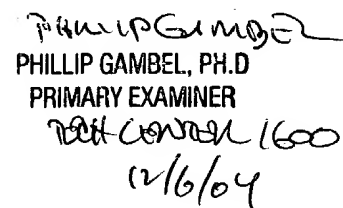 PHILLIP GAMBEL
PHILLIP GAMBEL, PH.D
PRIMARY EXAMINER
TECH CENTER 1600
12/6/04